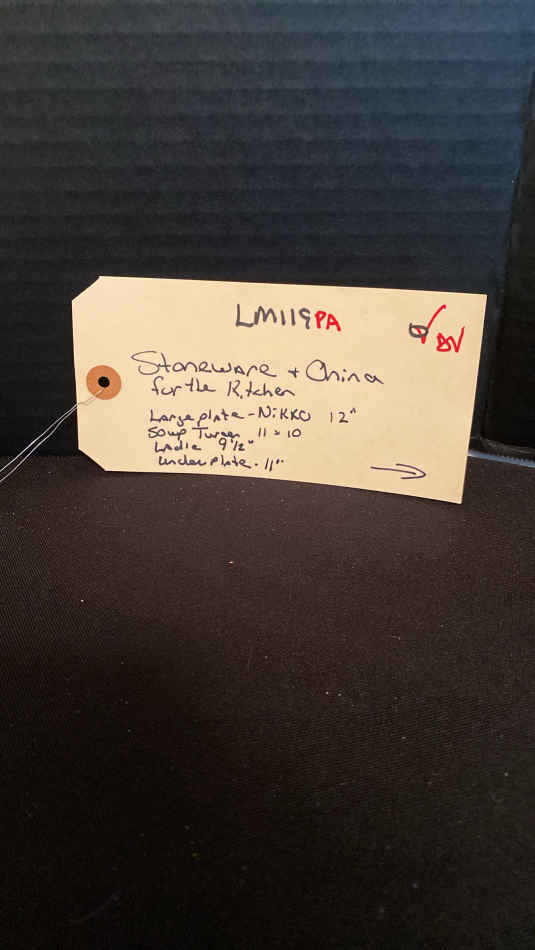 LM119PA
BV
Stoneware + China
for the Kitchen
Large plate - Nikko 12"
Soup Tureen 11 x 10
Ladle 9 1/2"
under plate - 11"